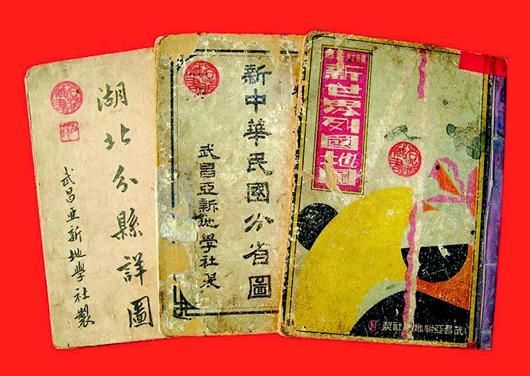 湖北分縣詳圖
武昌亞新地學社製
新中華民國分省圖
武昌亞新地學社製
新世界列國地圖
武昌亞新地學社製